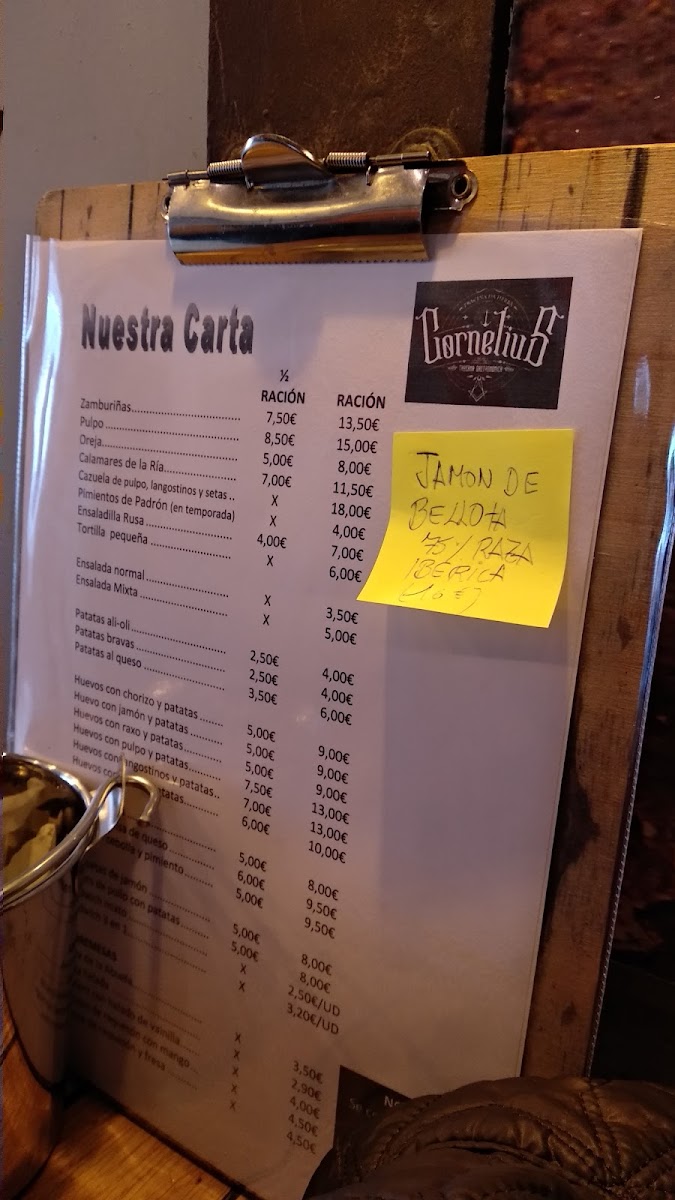 Nuestra Carta
Cornelius
½
RACIÓN RACIÓN
Zamburiñas.............................. 7,50€ 13,50€
Pulpo .................................... 8,50€ 15,00€
Oreja..................................... 5,00€ 8,00€
Calamares de la Ría.................... 7,00€ 11,50€
Cazuela de pulpo, langostinos y setas .. X 18,00€
Pimientos de Padrón (en temporada) X 4,00€
Ensaladilla Rusa ........................ 4,00€ 7,00€
Tortilla pequeña ........................ X 6,00€
Ensalada normal ........................ X 3,50€
Ensalada Mixta ......................... X 5,00€
Patatas ali-oli ........................... 2,50€ 4,00€
Patatas bravas .......................... 2,50€ 4,00€
Patatas al queso ........................ 3,50€ 6,00€
Huevos con chorizo y patatas ....... 5,00€ 9,00€
Huevo con jamón y patatas ......... 5,00€ 9,00€
Huevos con raxo y patatas........... 5,00€ 9,00€
Huevos con pulpo y patatas......... 7,50€ 13,00€
Huevos con langostinos y patatas.. 7,00€ 13,00€
Huevos 6,00€ 10,00€
5,00€ 8,00€
de queso .......... 6,00€ 9,50€
y pimiento ......... 5,00€ 9,50€
de jamón ................ 5,00€ 8,00€
de pollo con patatas ........ 5,00€ 8,00€
X 2,50€/UD
X 3,20€/UD
de la Abuela .................. X 3,50€
X 2,90€
con helado de vainilla ........ X 4,00€
de requesón con mango ...... X 4,50€
y fresa ....... X 4,50€
JAMON DE
BELLOTA
75% RAZA
IBERICA